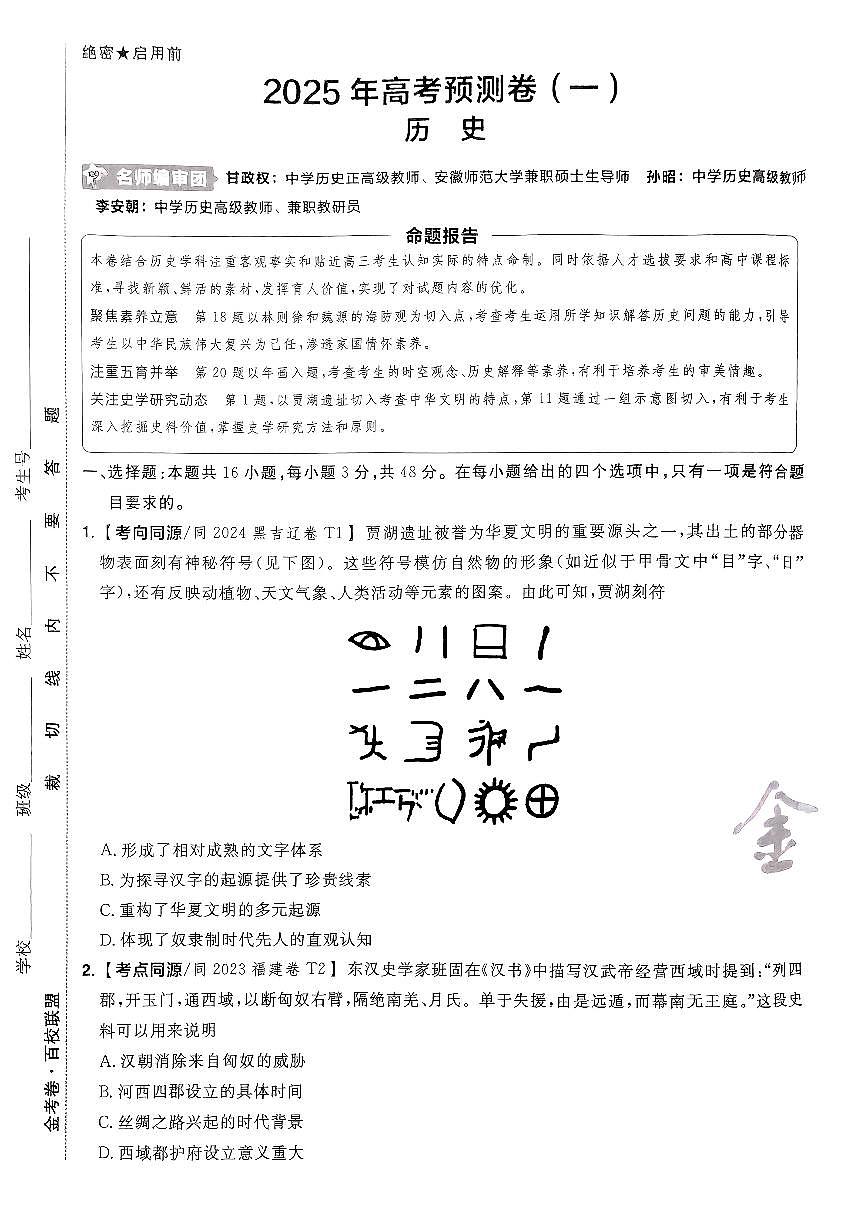 绝密★启用前
2025年高考预测卷(一)
历 史
名师编审团 甘政权：中学历史正高级教师、安徽师范大学兼职硕士生导师 孙昭：中学历史高级教师
李安朝：中学历史高级教师、兼职教研员
命题报告
本卷结合历史学科注重客观事实和贴近高三考生认知实际的特点命制。同时依据人才选拔要求和高中课程标
准，寻找新颖、鲜活的素材，发挥育人价值，实现了对试题内容的优化。
聚焦素养立意 第18题以林则徐和魏源的海防观为切入点，考查考生运用所学知识解答历史问题的能力，引导
考生以中华民族伟大复兴为己任，渗透家国情怀素养。
注重五育并举 第20题以年画入题，考查考生的时空观念、历史解释等素养，有利于培养考生的审美情趣。
关注史学研究动态 第1题，以贾湖遗址切入考查中华文明的特点，第11题通过一组示意图切入，有利于考生
深入挖掘史料价值，掌握史学研究方法和原则。
一、选择题：本题共16小题，每小题3分，共48分。在每小题给出的四个选项中，只有一项是符合题
目要求的。
1.【考向同源/同2024黑吉辽卷T1】贾湖遗址被誉为华夏文明的重要源头之一，其出土的部分器
物表面刻有神秘符号(见下图)。这些符号模仿自然物的形象(如近似于甲骨文中“目”字、“日”
字)，还有反映动植物、天文气象、人类活动等元素的图案。由此可知，贾湖刻符
A.形成了相对成熟的文字体系
B.为探寻汉字的起源提供了珍贵线索
C.重构了华夏文明的多元起源
D.体现了奴隶制时代先人的直观认知
2.【考点同源/同2023福建卷T2】东汉史学家班固在《汉书》中描写汉武帝经营西域时提到：“列四
郡，开玉门，通西域，以断匈奴右臂，隔绝南羌、月氏。单于失援，由是远遁，而幕南无王庭。”这段史
料可以用来说明
A.汉朝消除来自匈奴的威胁
B.河西四郡设立的具体时间
C.丝绸之路兴起的时代背景
D.西域都护府设立意义重大
金
学校 班级 姓名 考生号
裁切线内不要答题
金考卷·百校联盟